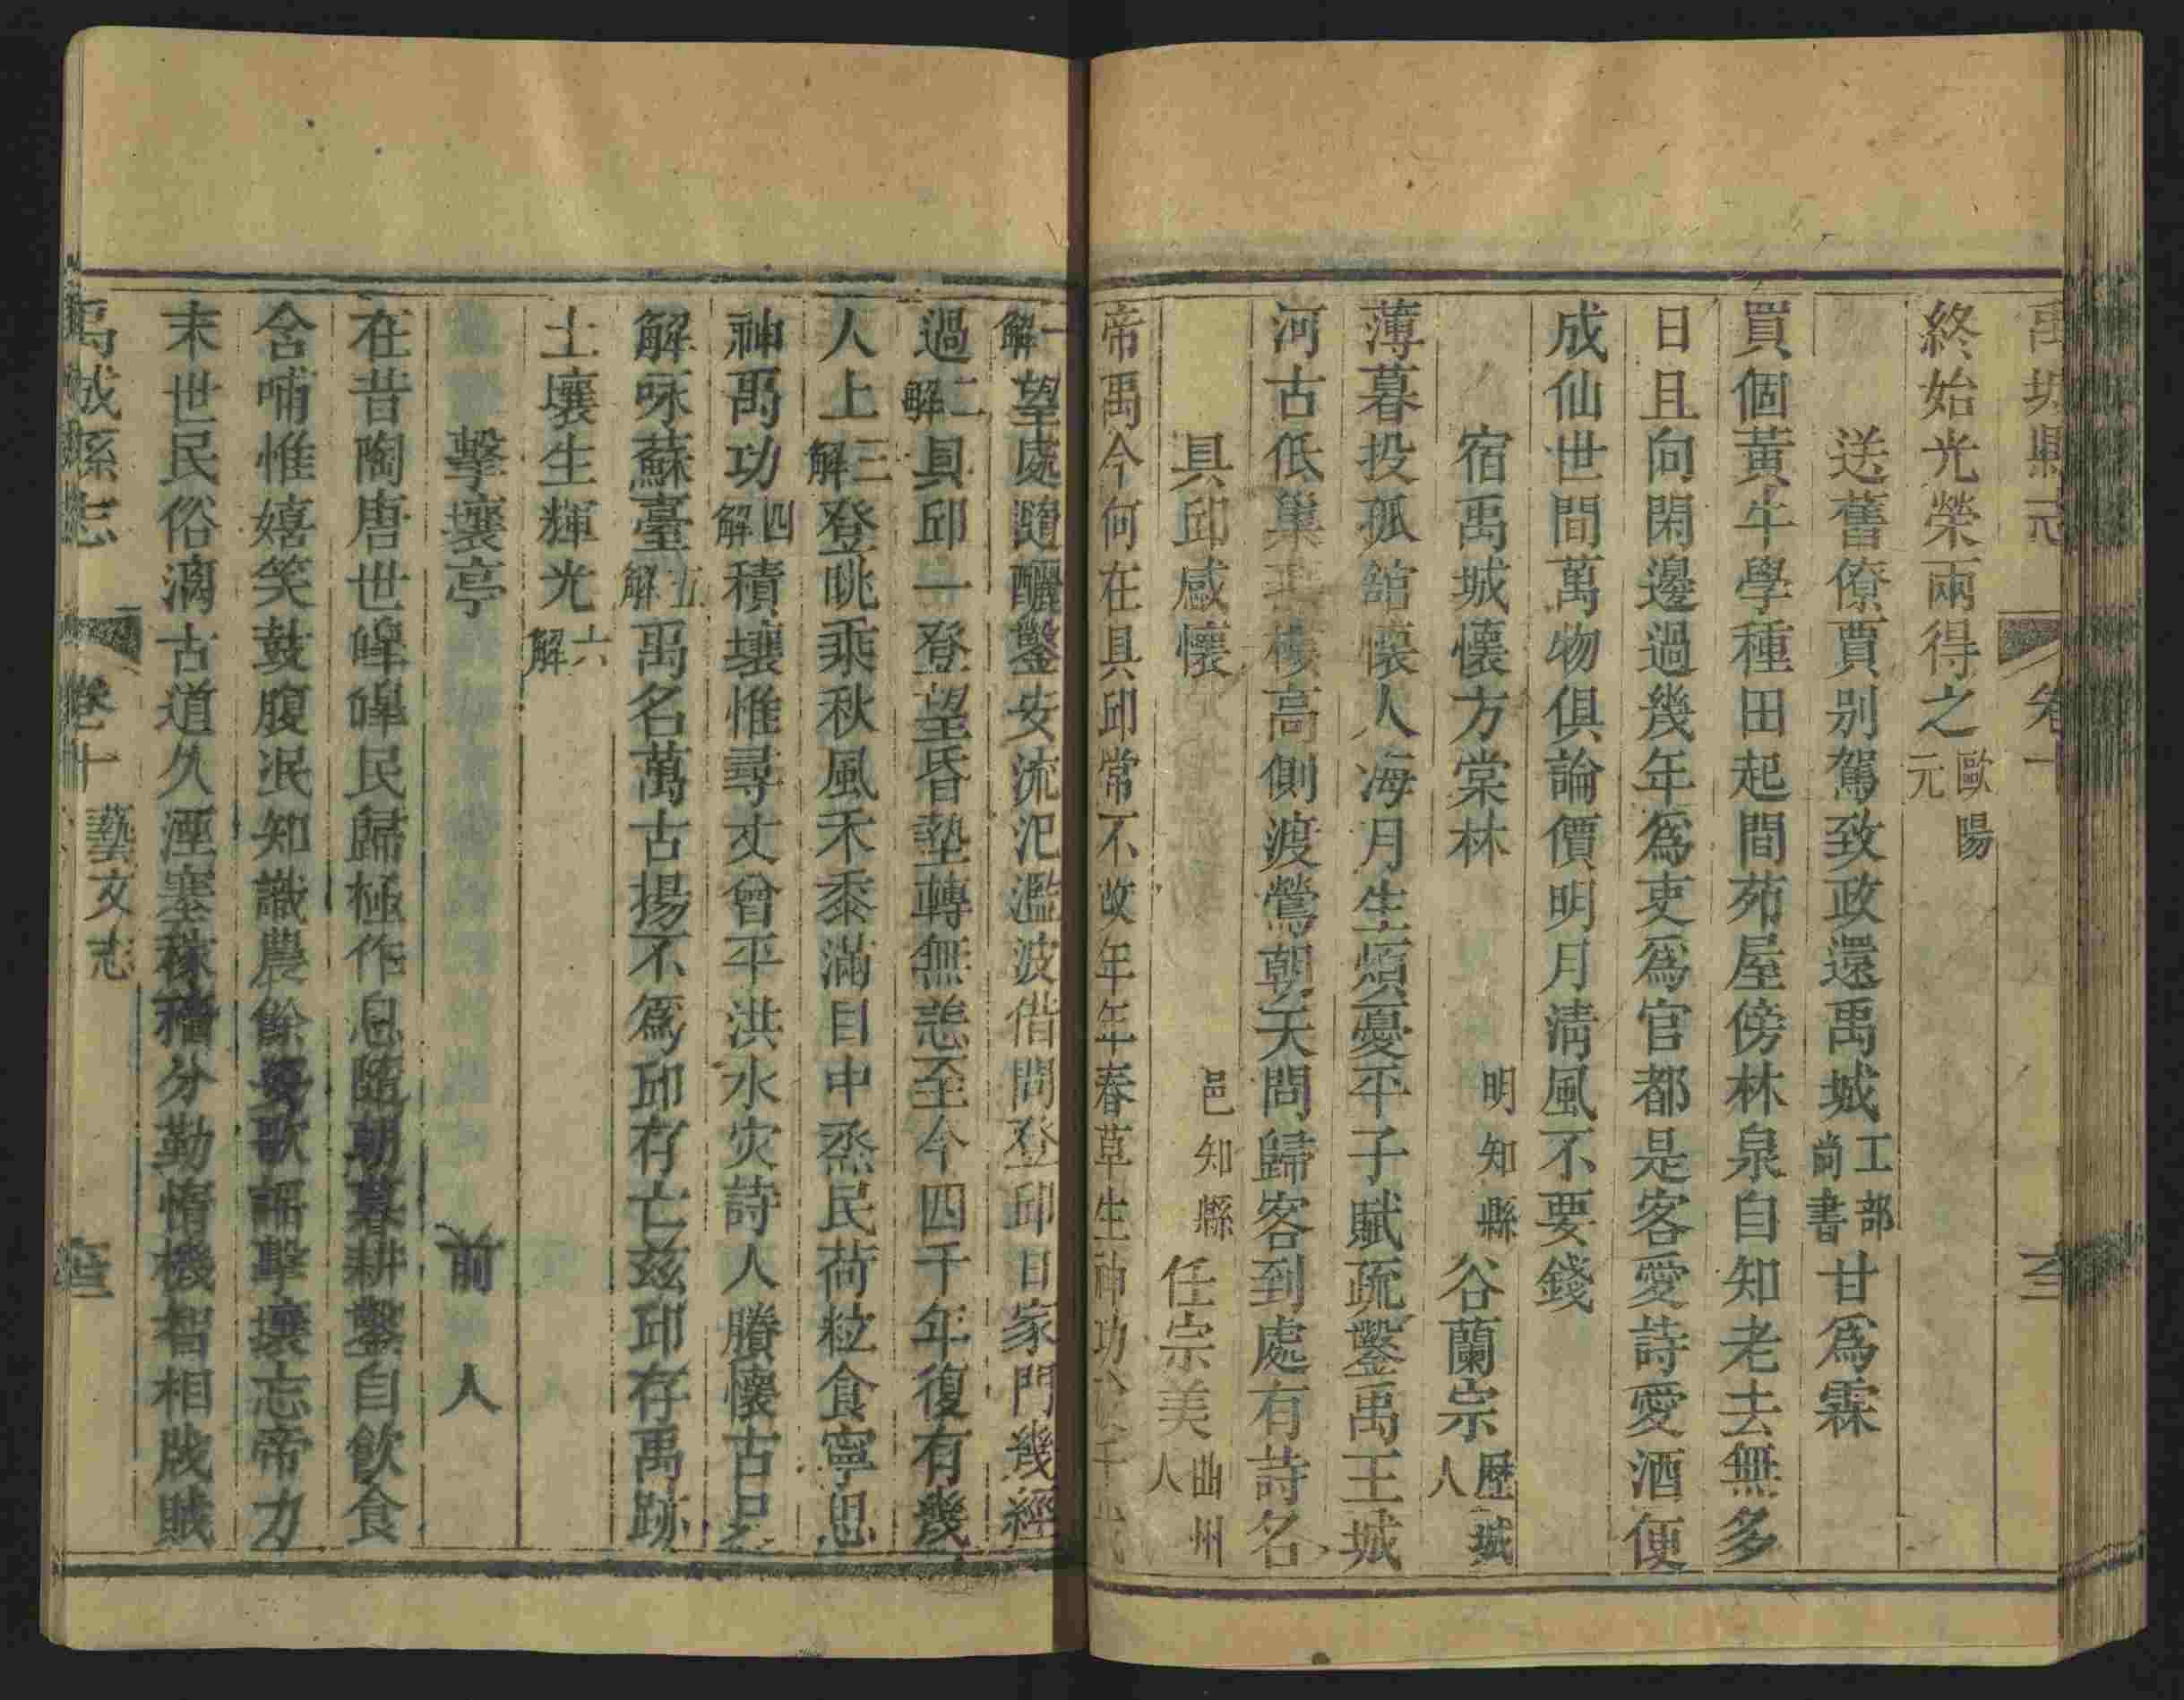 禹城縣志 卷十
終始光榮兩得之歐陽元
送舊僚賈别駕致政還禹城工部尚書甘爲霖
買個黃牛學種田起間茆屋傍林泉自知老去無多
日且向閑邊過幾年爲吏爲官都是客愛詩愛酒便
成仙世間萬物俱論價明月清風不要錢
宿禹城懷方棠林 明知縣谷蘭宗歷城人
薄暮投孤舘懷人海月生煩憂平子賦疏鑿禹王城
河古低巢樓高側渡鶯朝天問歸客到處有詩名
具邱感懷 邑知縣任宗美曲州人
帝禹今何在具邱常不改年年春草生神功千
一解望處隨釃鑿安流汜濫波借問登邱日家門幾經
過二解具邱一登望昏墊轉無恙至今四千年復有幾
人上三解登眺乘秋風禾黍滿目中烝民荷粒食寧思
神禹功四解積壤惟尋丈曾平洪水灾詩人賸懷古只
解咏蘇臺五解禹名萬古揚不爲邱存亡兹邱存禹跡
土壤生輝光六解
擊壤亭 前人
在昔陶唐世皥皥民歸極作息隨朝暮耕鑿自飲食
含哺惟嬉笑鼓腹泯知識農餘興歌謡擊壤忘帝力
末世民俗漓古道久湮塞稼穡分勤惰機智相戕賊
禹城縣志 卷十 藝文志